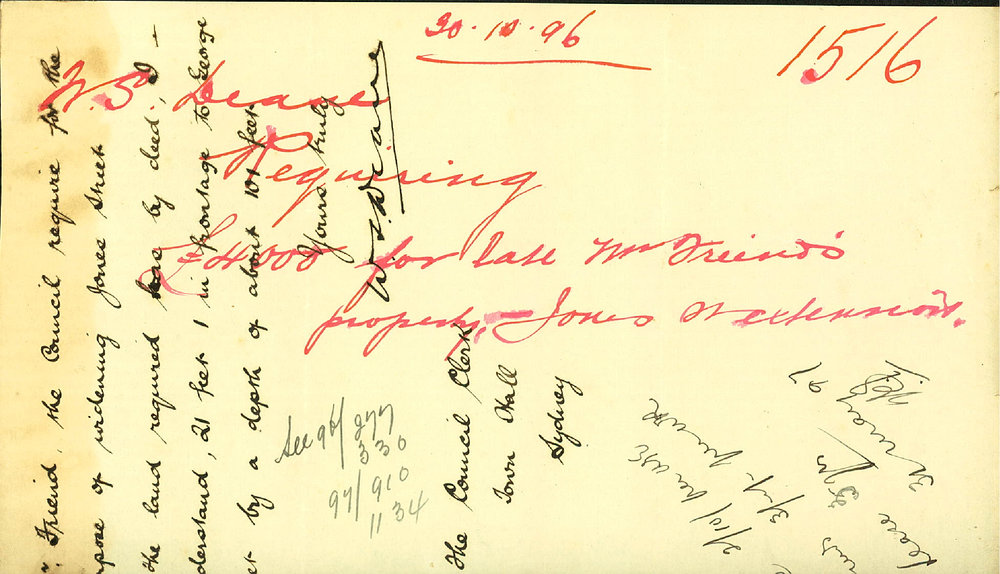 30.10.96
1516
W. S. Deane
Requiring
£4000 for late Mr Friend's
property, Jones St extension.
Friend, the Council require for the
pose of widening Jones Street
the land required has by deed, I
derstand, 21 feet 1 in frontage to George
et by a depth of about 101 feet
Yours truly
W. S. Deane
The Council Clerk
Town Hall
Sydney
See 96/277
330
97/910
1134